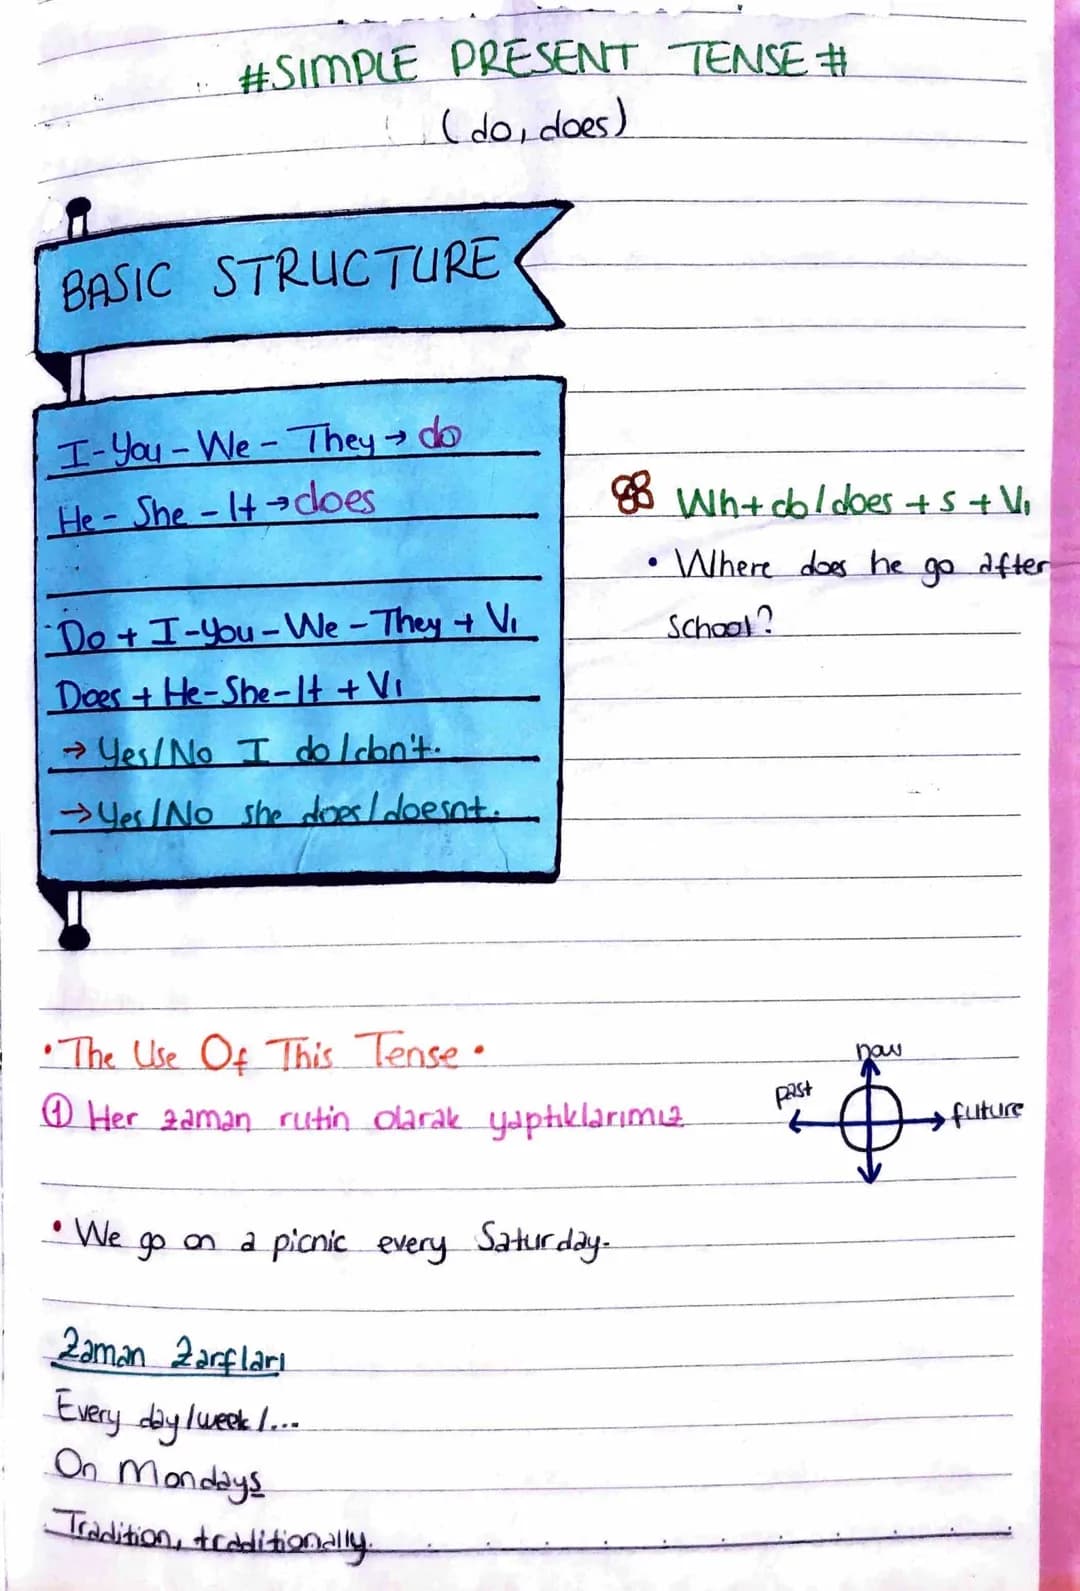 #SIMPLE PRESENT TENSE#
(do, does)
BASIC STRUCTURE
I-You-We-They → do
He-She-It → does
Do + I-You-We-They + V₁
Does + He-She-It + V₁
→ Yes/No I do/don't.
→ Yes/No she does/doesnt.
Wh + do/does + s + V₁
• Where does he go after
school?
• The Use Of This Tense •
① Her zaman rutin olarak yaptıklarımız
now
past
future
• We go on a picnic every Saturday.
Zaman Zarfları
Every day/week/...
On Mondays
Tradition, traditionally.